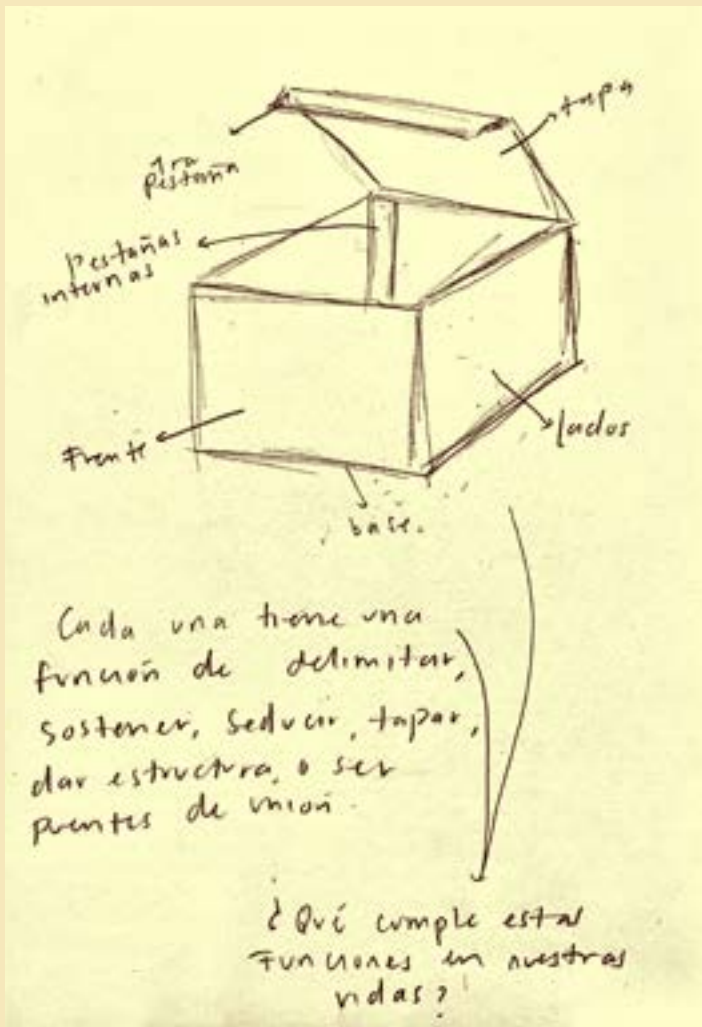 tapa
1ra
Pestaña
Pestañas
internas
Frente
lados
base.
Cada una tiene una
función de delimitar,
sostener, seducir, tapar,
dar estructura, o ser
puentes de unión.
¿Qué cumple estas
Funciones en nuestras
vidas?